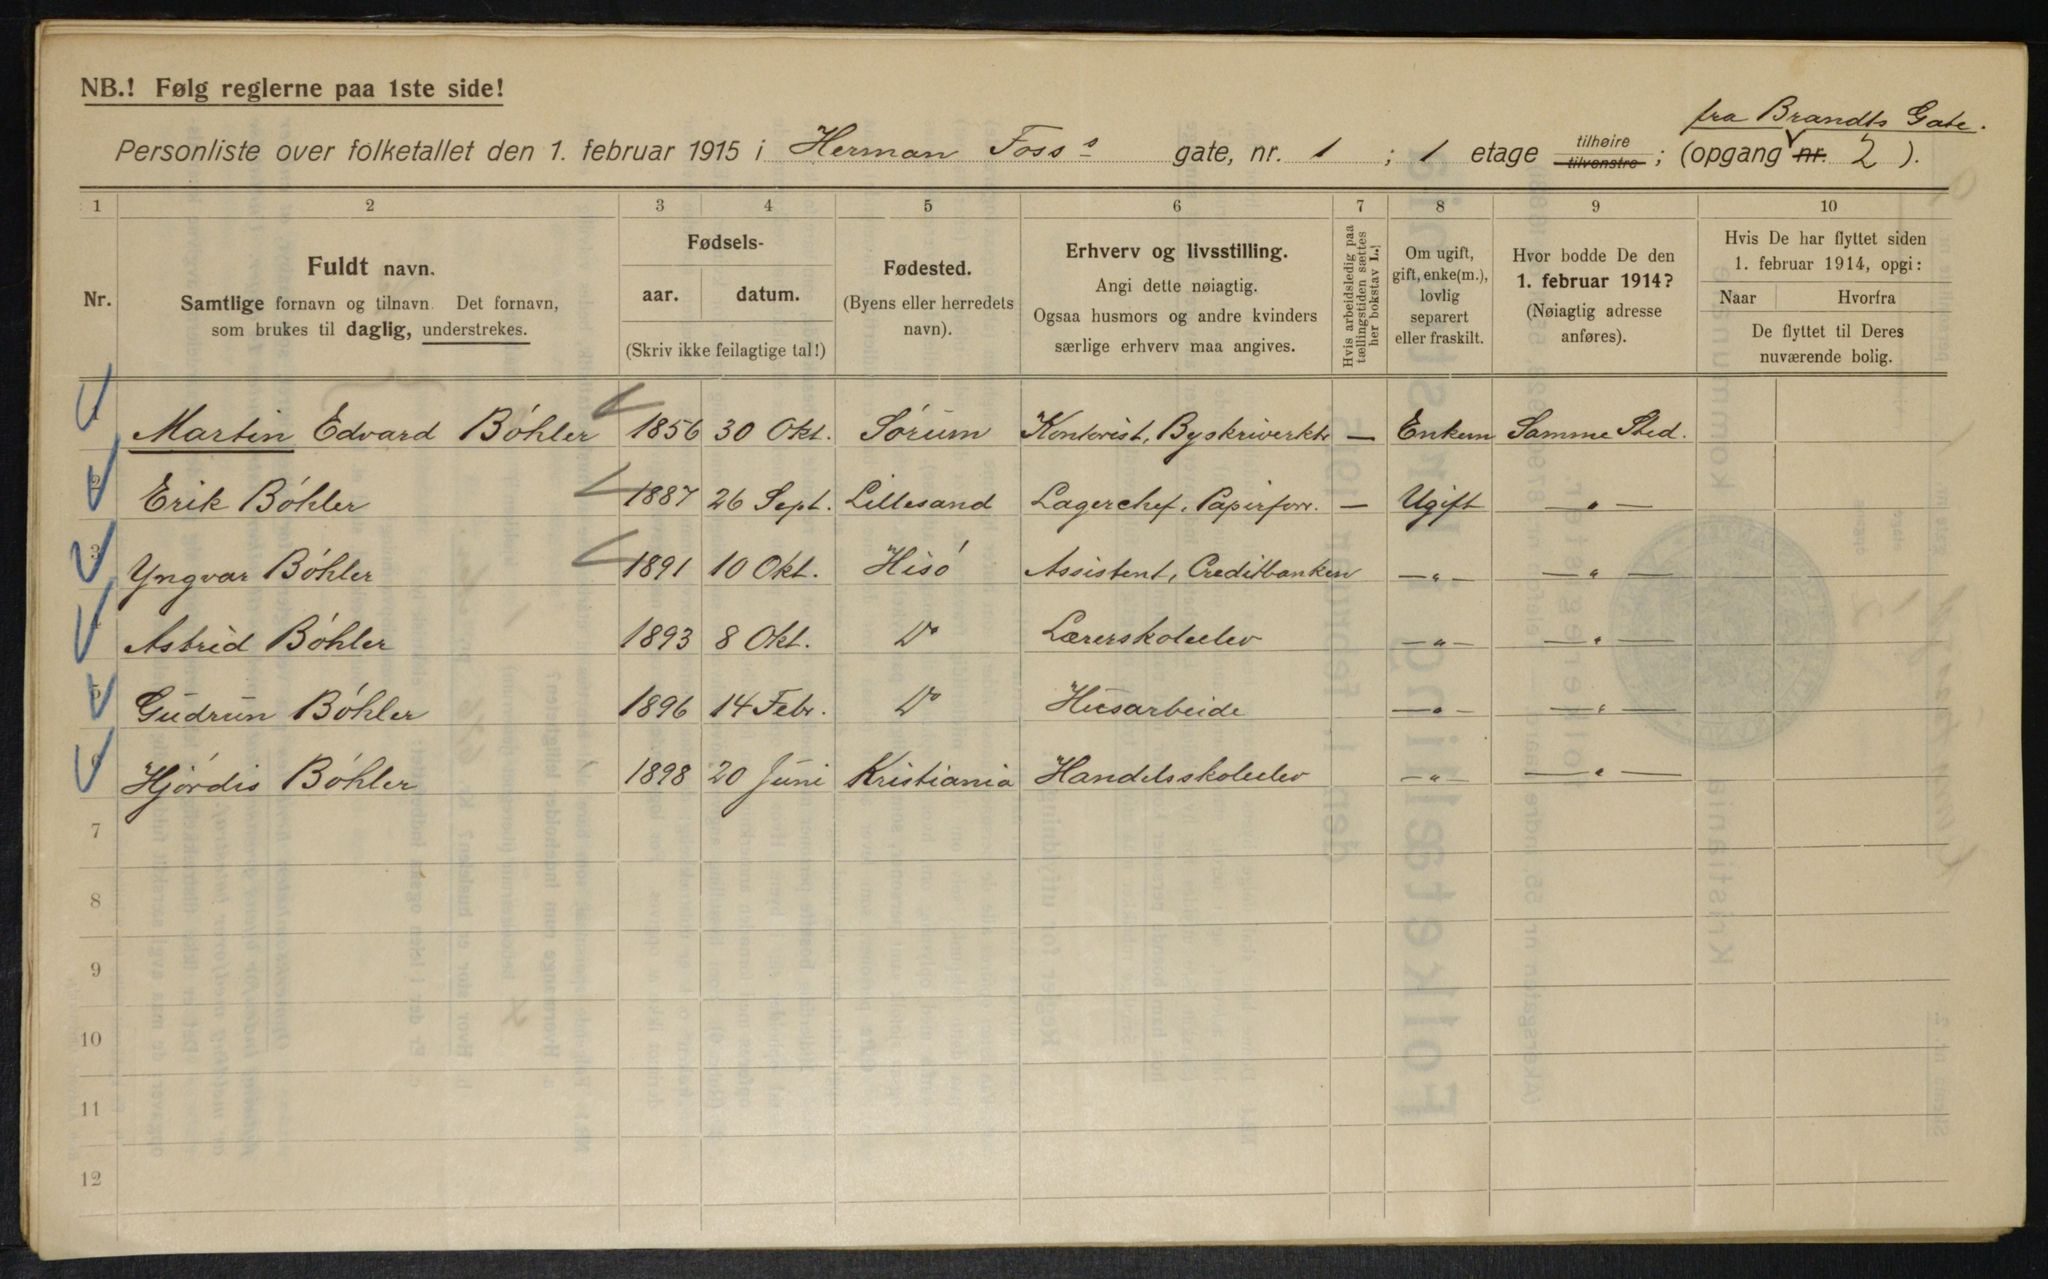 NB.! Følg reglerne paa 1ste side!
fra Brandts Gate.
Personliste over folketallet den 1. februar 1915 i Herman Foss's gate, nr. 1 ; 1 etage tilhøire tilvenstre ; (opgang nr. 2 ).
1 2 3 4 5 6 7 8 9 10
Nr.
Fuldt navn.
Samtlige fornavn og tilnavn. Det fornavn,
som brukes til daglig, understrekes.
Fødsels-
aar. datum.
(Skriv ikke feilagtige tal!)
Fødested.
(Byens eller herredets
navn).
Erhverv og livsstilling.
Angi dette nøiagtig.
Ogsaa husmors og andre kvinders
særlige erhverv maa angives.
Hvis arbeidsledig paa
tællingstiden sættes
her bokstav L.!
Om ugift,
gift, enke(m.),
lovlig
separert
eller fraskilt.
Hvor bodde De den
1. februar 1914?
(Nøiagtig adresse
anføres).
Hvis De har flyttet siden
1. februar 1914, opgi:
Naar Hvorfra
De flyttet til Deres
nuværende bolig.
1 Martin Edvard Böhler 1856 30 Okt. Sörum Kontorist, Byskriverktr — Enkem Samme Sted.
2 Erik Böhler 1887 26 Sept. Lillesand Lagerchef, Papirforr. — Ugift — " —
3 Yngvar Böhler 1891 10 Okt. Hisö Assistent, Creditbanken — " — — " —
4 Astrid Böhler 1893 8 Okt. Do Lærerskoleelev — " — — " —
5 Gudrun Böhler 1896 14 Febr. Do Husarbeide — " — — " —
6 Hjördis Böhler 1898 20 Juni Kristiania Handelsskoleelev — " — — " —
7
8
9
10
11
12